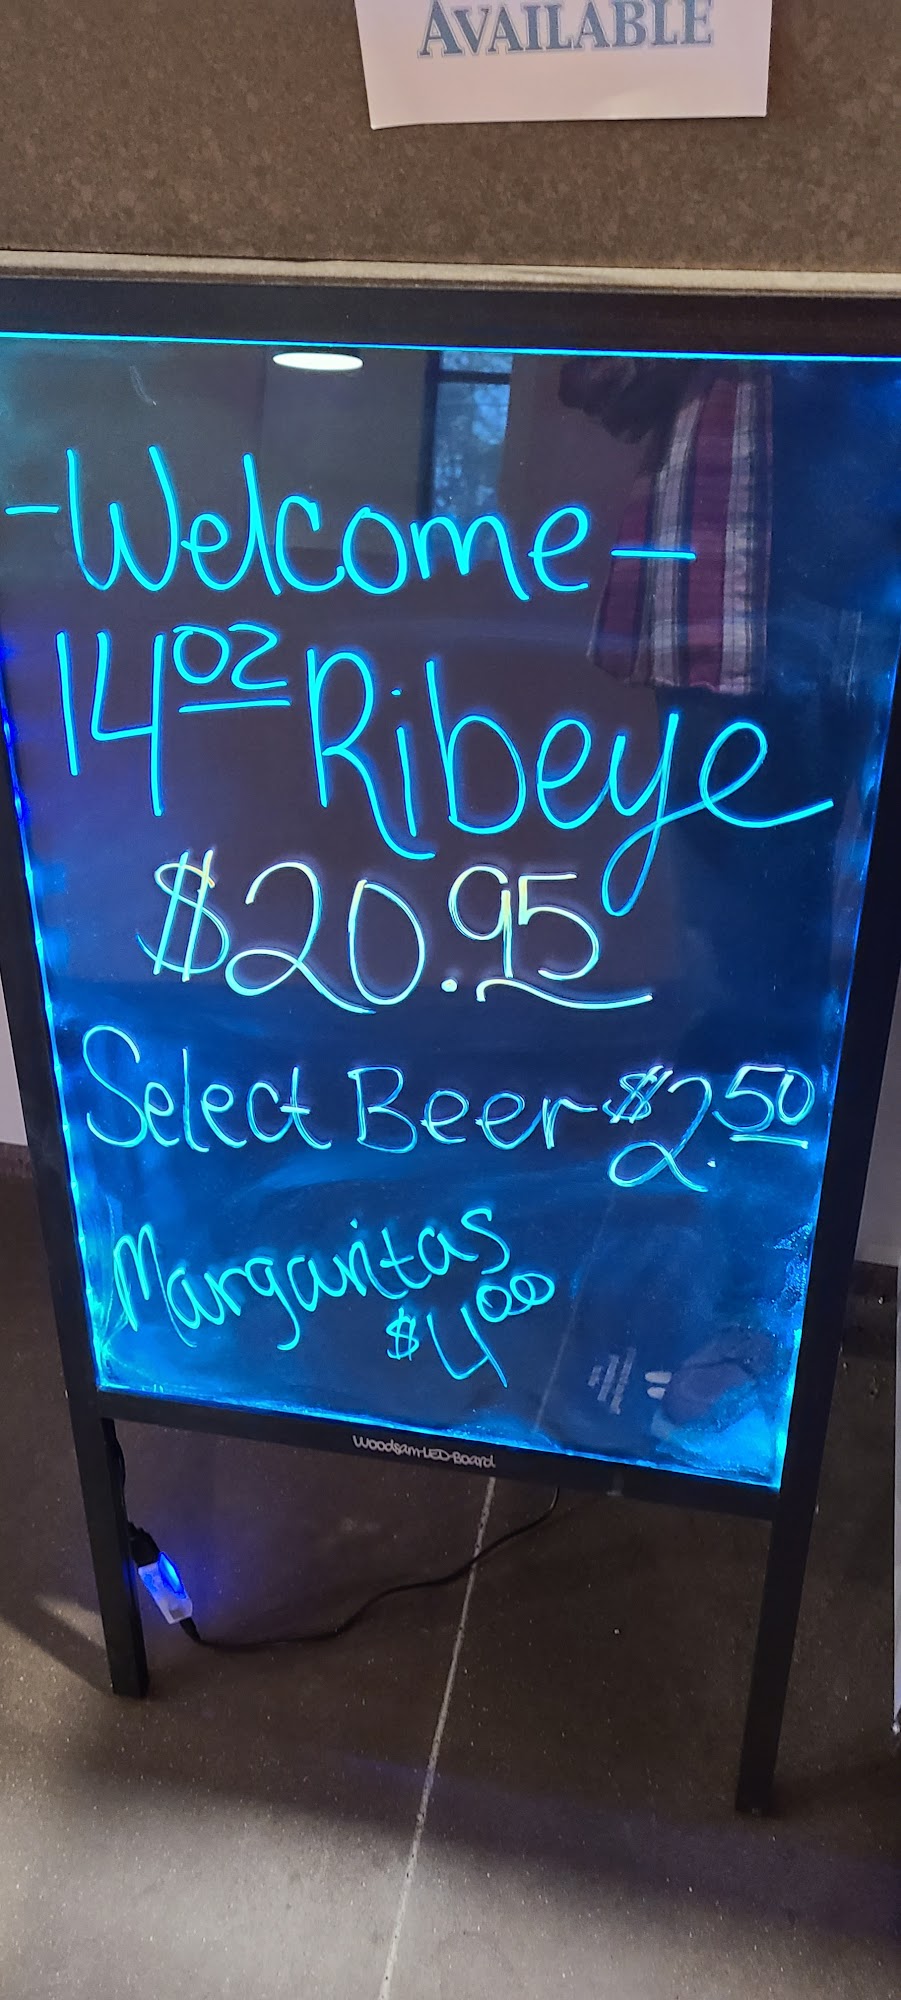 AVAILABLE
-Welcome-
14oz Ribeye
$20.95
Select Beer $2.50
Margaritas
$4.00
Woodsam-LED-Board